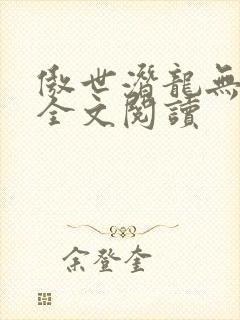 傲世潛龍無
全文閱讀
余登奎